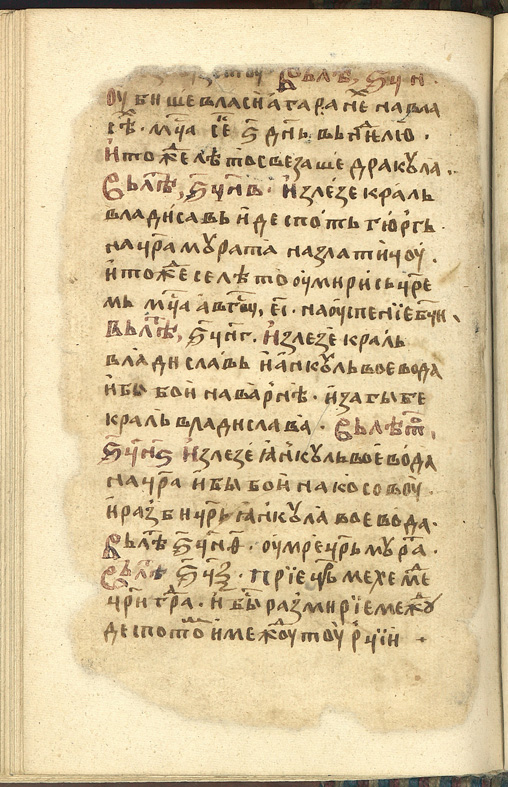 Въ лѣ, ҂ѕ҃ц҃н.
ѹби ше власи҃ га҃га ра҃не на вла
сѣ. мц҃а се҃ ѕ҃ днь вь нлю.
И тожⷣе лѣто свезаше дракула.
Вь лѣ, ҂ѕ҃ц҃нв. Излезе краль
владисавь и деспоть гюргь.
на цр҃а мурата на златицоу.
и тожⷣе се лѣто оумири сь цр҃е
мь мц҃а авгоу, еі. на оуспенїе бц҃и
Вь лѣ, ҂ѕ҃ц҃нг. Излезе краль
владиславь и ꙗнкуль воевода
и бы бои на варнѣ. и загыбе
краль владислава. Вь лѣто
҂ѕ҃ц҃нѕ Излезе ꙗнкуль воевода
на цр҃а и бы бои на косовоу.
и разби цр҃ь ꙗнкула воевода.
Вь лѣ ҂ѕ҃ц҃нѳ. оумре цр҃ь мура.
Вь лѣ ҂ѕ҃ц҃ѯ. прїе цр҃ь мехеме
цр҃и гра. и бы размирїе межⷣꙋ
деспото и межⷣоу тоурци